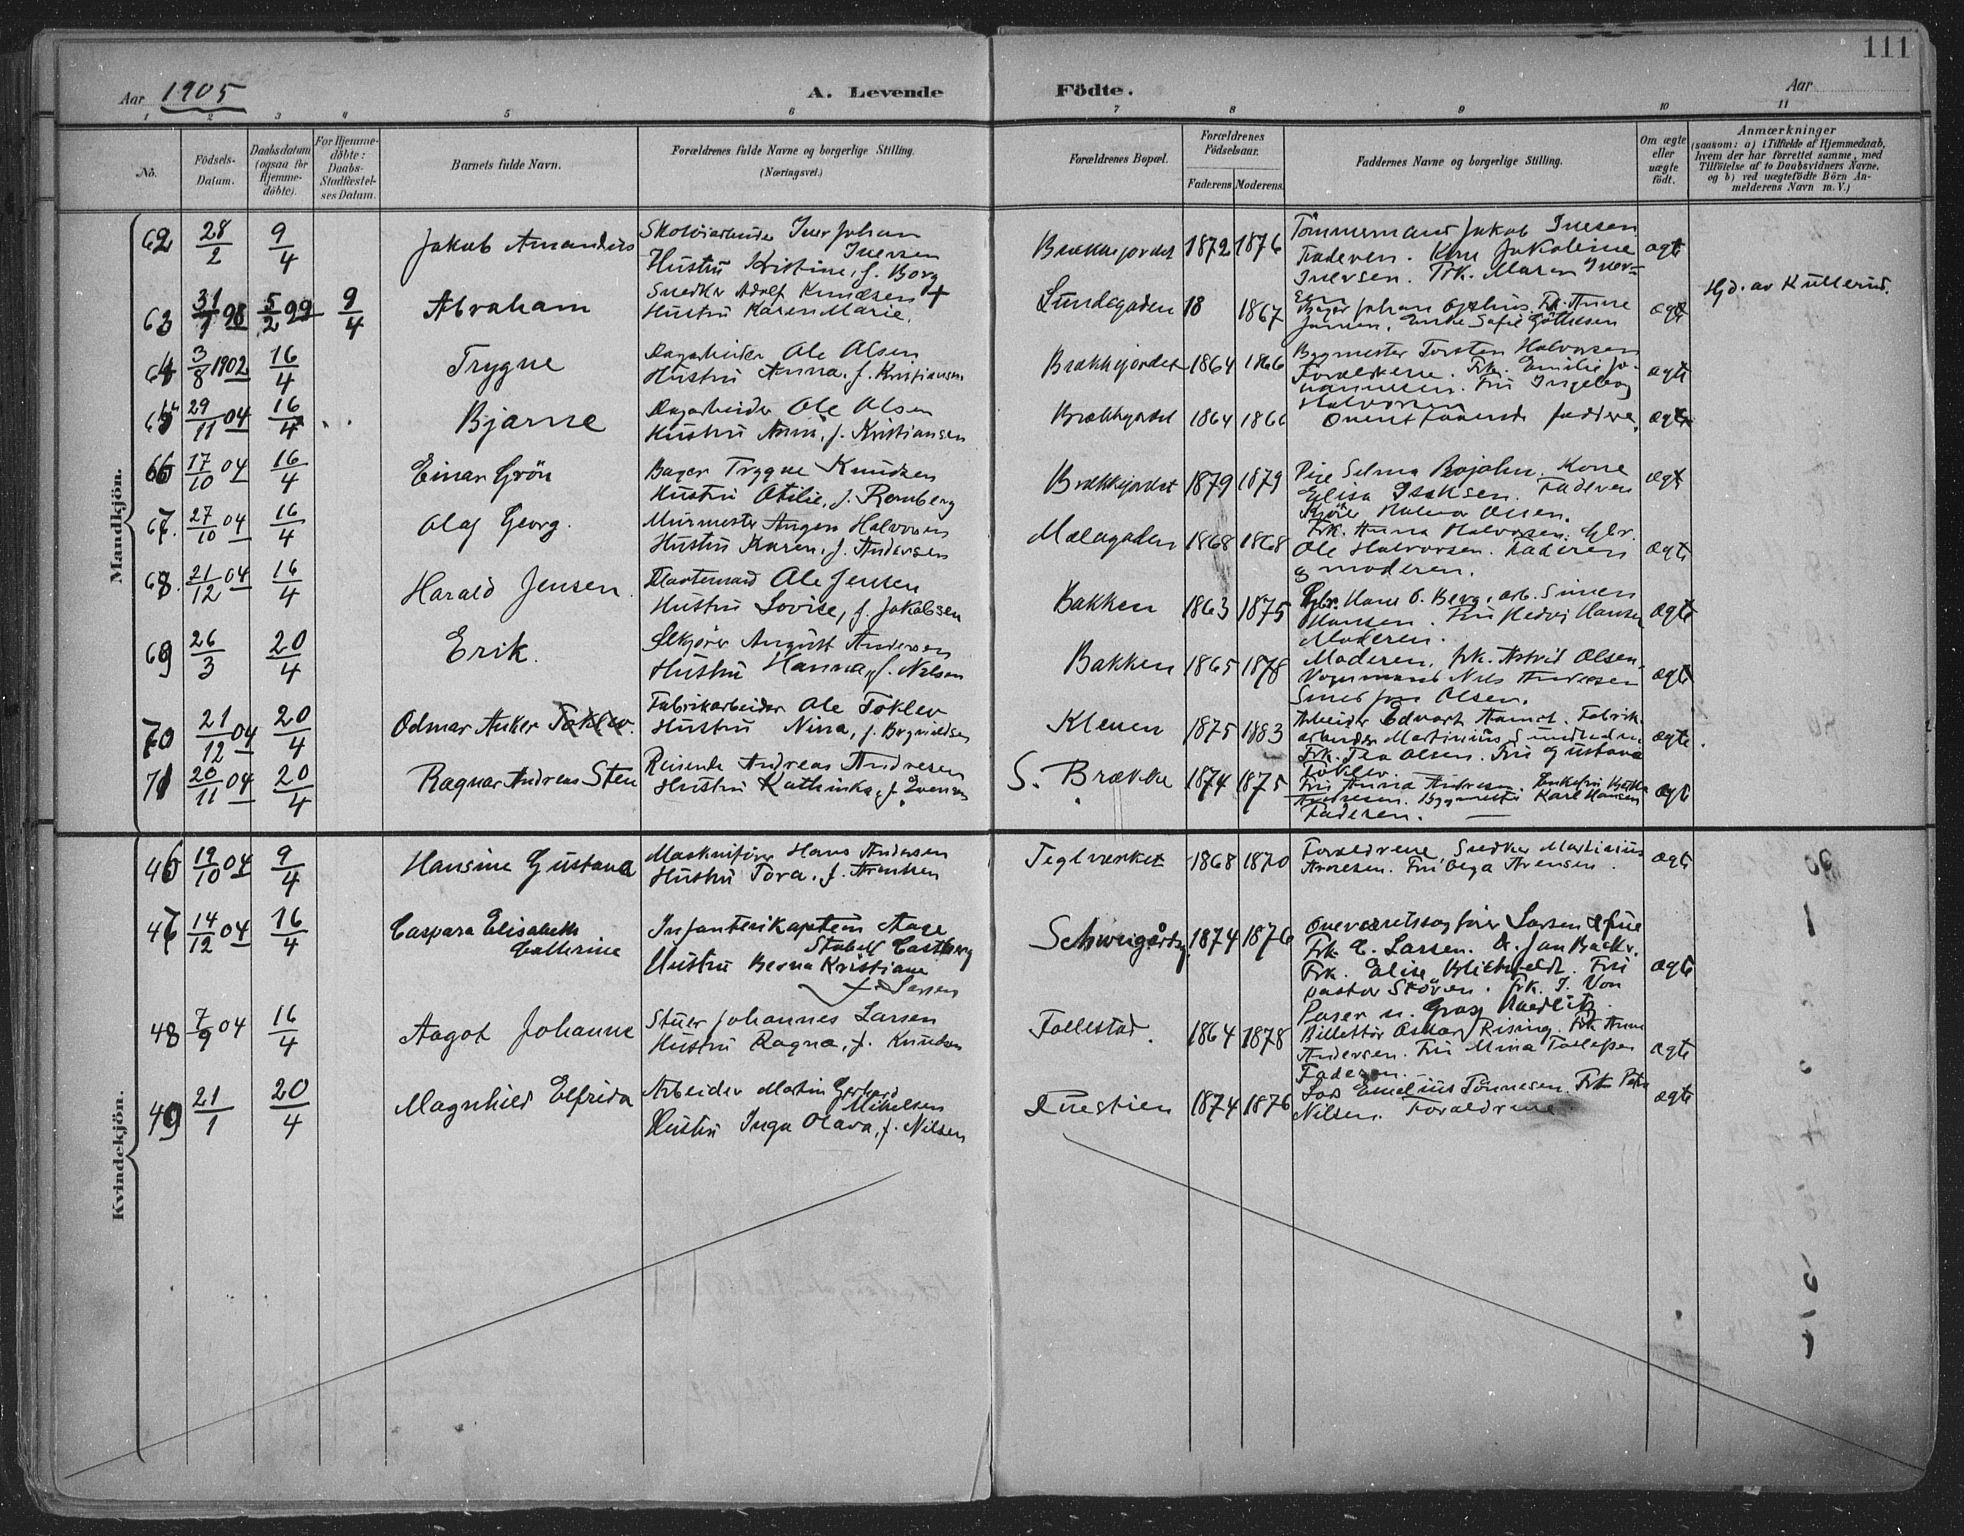 111
Aar 1905
A. Levende Födte.
Aar
1 2 3 4 5 6 7 8 9 10 11
No.
Födsels-Datum.
Daabsdatum (ogsaa for Hjemme-döbte).
For Hjemme-döbte: Daabs-Stadfæstel-ses Datum.
Barnets fulde Navn.
Forældrenes fulde Navne og borgerlige Stilling. (Næringsvei.)
Forældrenes Bopæl.
Forældrenes Födselsaar.
Faderens. Moderens.
Faddernes Navne og borgerlige Stilling.
Om ægte eller uægte födt.
Anmærkninger
(saasom: a) i Tilfælde af Hjemmedaab, hvem der har forrettet samme, med Tilföielse af to Daabsvidners Navne, og b) ved uægtefödte Börn An-melderens Navn m. V.)
Mandkjön.
62 28/2 9/4 Jakob Amandus
Skotöiarbeider Iver Johan Iversen
Hustru Kristine, f. Borg
Brækkejordet 1872 1876
Tömmermand Jakob Iversen
Faderen. Kone Jakobine
Iversen. Frk. Maren Iver-
sen
ægte
63 31/1 98 5/2 99 9/4 Abraham
Snedker Adolf Knudsen +
Hustru Karen Marie.
Lundegaden 18 1867
ægte
Hjd. av Kullerud.
64 3/8 1902 16/4 Trygve
Dagarbeider Ole Olsen
Hustru Anna, f. Kristiansen
Brækkejordet 1864 1866
Bygmester Torsten Halvorsen
Forældrene. Frk. Emilie Jo-
hannesen. Fru Ingeborg
Halvorsen
ægte
65 29/11 04 16/4 Bjarne
Dagarbeider Ole Olsen
Hustru Anna, f. Kristiansen
Brækkejordet 1864 1866
Ovenstaaende faddere.
ægte
66 17/10 04 16/4 Einar Grön
Bager Trygve Knudsen
Hustru Otilie, f. Romberg
Brækkejordet 1879 1879
Pige Selma Bojahn. Kone
Elisa Isaksen. Faderen
Kjöer Halvor Olsen.
ægte
67. 27/10 04 16/4 Olaf Georg.
Murmester Halvorsen
Hustru Karen, f. Andersen
Mælagaden 1868 1868
Frk. Anna Halvorsen. Gbr.
Ole Halvorsen. Faderen
og moderen.
ægte
68. 21/12 04 16/4 Harald Jensen.
Ole Jensen
Hustru Lovise, f. Jakobsen
Bakken 1863 1875
Gbr. Hans O. Berg, arb. Simen
Hansen. Fru Hedvig Hansen
Moderen.
ægte
69 26/3 20/4 Erik.
August Andersen
Hustru Hanna, f. Nilsen
Bakken 1865 1878
Moderen, frk. Astrid Olsen.
Vognmand Nils Andersen
Smed Olsen.
ægte
70 21/12 04 20/4 Odmar Anker Toklev.
Fabrikarbeider Ole Toklev
Hustru Nina, f.
Kleven 1875 1883
Arbeider Edvart Fabrik-
arbeider Martinius
Frk. Tea Olsen. Fru Gustava
Toklev.
ægte.
71 20/11 04 20/4 Ragnar Andreas Sten
Reisende Andreas Andresen
Hustru Kathinka, f.
S. Brække 1874 1875
Fru Anna Andresen. Enkefru
Andresen. Bygmester Karl Hansen
Faderen.
ægte
Kvindekjön.
46 19/10 04 9/4 Hansine Gustava
Maskinförer Hans Andersen
Hustru Tora, f. Arentsen
Teglverket 1868 1870
Forældrene, Snedker Martinius
Arentsen. Fru Olga Arensen.
ægte
47 14/12 04 16/4 Caspara Elisabeth
Cathrine
Infanterikaptein Aage
Stabell Castberg
Hustru Berna Kristiane
f. Larsen
Schweigårdsg. 1874 1876
Overretssagförer Larsen & frue
Frk. C. Larsen. Dr. Jan Backe.
Frk. Elise Blichfeldt. Fru
pastor Stören. Frk. I. Von
Paser u. Gross Naedlitz.
ægte
48 7/9 04 16/4 Aagot Johanne
Stuer Johannes Larsen
Hustru Ragna, f. Knudsen
Follestad. 1864 1878
Billettör Oskar Rising. Frk Anna
Andersen. Fru Mina Tollefsen
Faderen.
ægte
49 21/1 20/4 Magnhild Elfrida
Arbeider Martin Gerhard
Mikelsen
Hustru Inga Olava, f. Nilsen
1874 1876
Los Emelius Tönnesen. Frk Petra
Nilsen. Forældrene
ægte